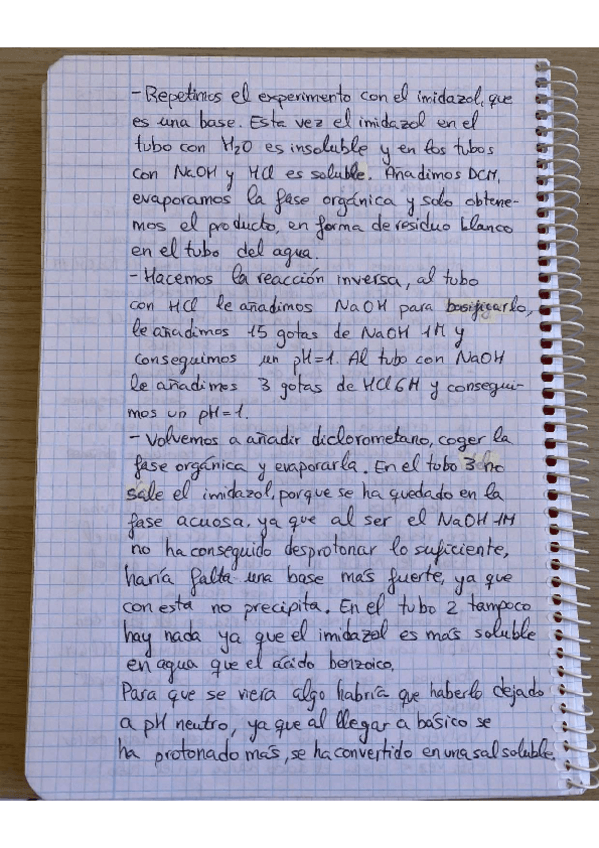 - Repetimos el experimento con el imidazol, que
es una base. Esta vez el imidazol en el
tubo con H₂O es insoluble y en los tubos
con NaOH y HCl es soluble. Añadimos DCM,
evaporamos la fase orgánica y solo obtene-
mos el producto, en forma de residuo blanco
en el tubo del agua.
- Hacemos la reacción inversa, al tubo
con HCl le añadimos NaOH para basificarlo,
le añadimos 15 gotas de NaOH 1M y
conseguimos un pH=1. Al tubo con NaOH
le añadimos 3 gotas de HCl 6M y consegui-
mos un pH=1.
- Volvemos a añadir diclorometano, coger la
fase orgánica y evaporarla. En el tubo 3 no
sale el imidazol, porque se ha quedado en la
fase acuosa, ya que al ser el NaOH 1M
no ha conseguido desprotonar lo suficiente,
haría falta una base más fuerte, ya que
con esta no precipita. En el tubo 2 tampoco
hay nada ya que el imidazol es más soluble
en agua que el ácido benzoico.
Para que se viera algo habría que haberlo dejado
a pH neutro, ya que al llegar a básico se
ha protonado más, se ha convertido en una sal soluble.